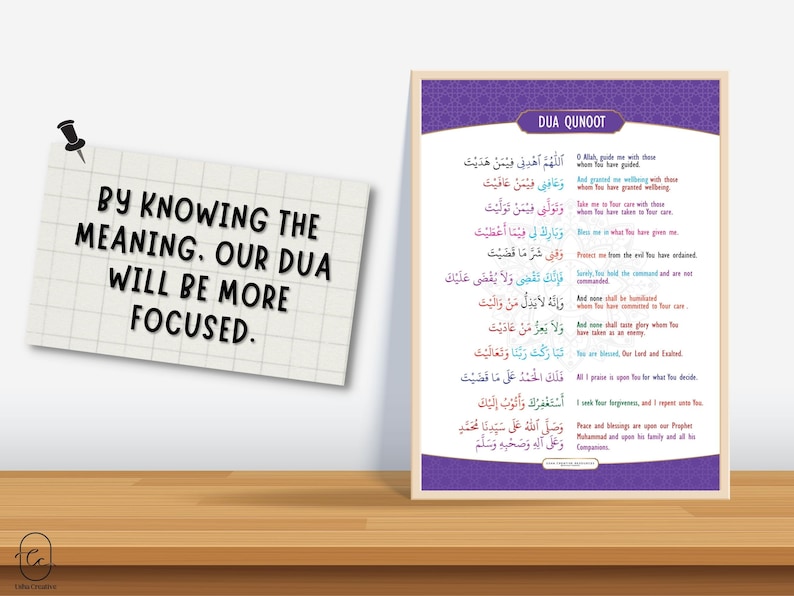 BY KNOWING THE
MEANING, OUR DUA
WILL BE MORE
FOCUSED.
DUA QUNOOT
اَللّٰهُمَّ اهْدِنِي فِيْمَنْ هَدَيْتَ
O Allah, guide me with those
whom You have guided.
وَعَافِنِي فِيْمَنْ عَافَيْتَ
And granted me wellbeing with those
whom You have granted wellbeing.
وَتَوَلَّنِي فِيْمَنْ تَوَلَّيْتَ
Take me to Your care with those
whom You have taken to Your care.
وَبَارِكْ لِي فِيْمَا أَعْطَيْتَ
Bless me in what You have given me.
وَقِنِي شَرَّ مَا قَضَيْتَ
Protect me from the evil You have ordained.
فَإِنَّكَ تَقْضِى وَلاَ يُقْضَى عَلَيْكَ
Surely, You hold the command and are not
commanded.
وَإِنَّهُ لاَيَذِلُّ مَنْ وَالَيْتَ
And none shall be humiliated
whom You have committed to Your care .
وَلاَ يَعِزُّ مَنْ عَادَيْتَ
And none shall taste glory whom You
have taken as an enemy.
تَبَا رَكْتَ رَبَّنَا وَتَعَالَيْتَ
You are blessed, Our Lord and Exalted.
فَلَكَ الْحَمْدُ عَلَى مَا قَضَيْتَ
All I praise is upon You for what You decide.
أَسْتَغْفِرُكَ وَأَتُوْبُ إِلَيْكَ
I seek Your forgiveness, and I repent unto You.
وَصَلَّى اللهُ عَلَى سَيِّدِنَا مُحَمَّدٍ
وَعَلَى آلِهِ وَصَحْبِهِ وَسَلَّمَ
Peace and blessings are upon our Prophet
Muhammad and upon his family and all his
Companions.
Usha Creative